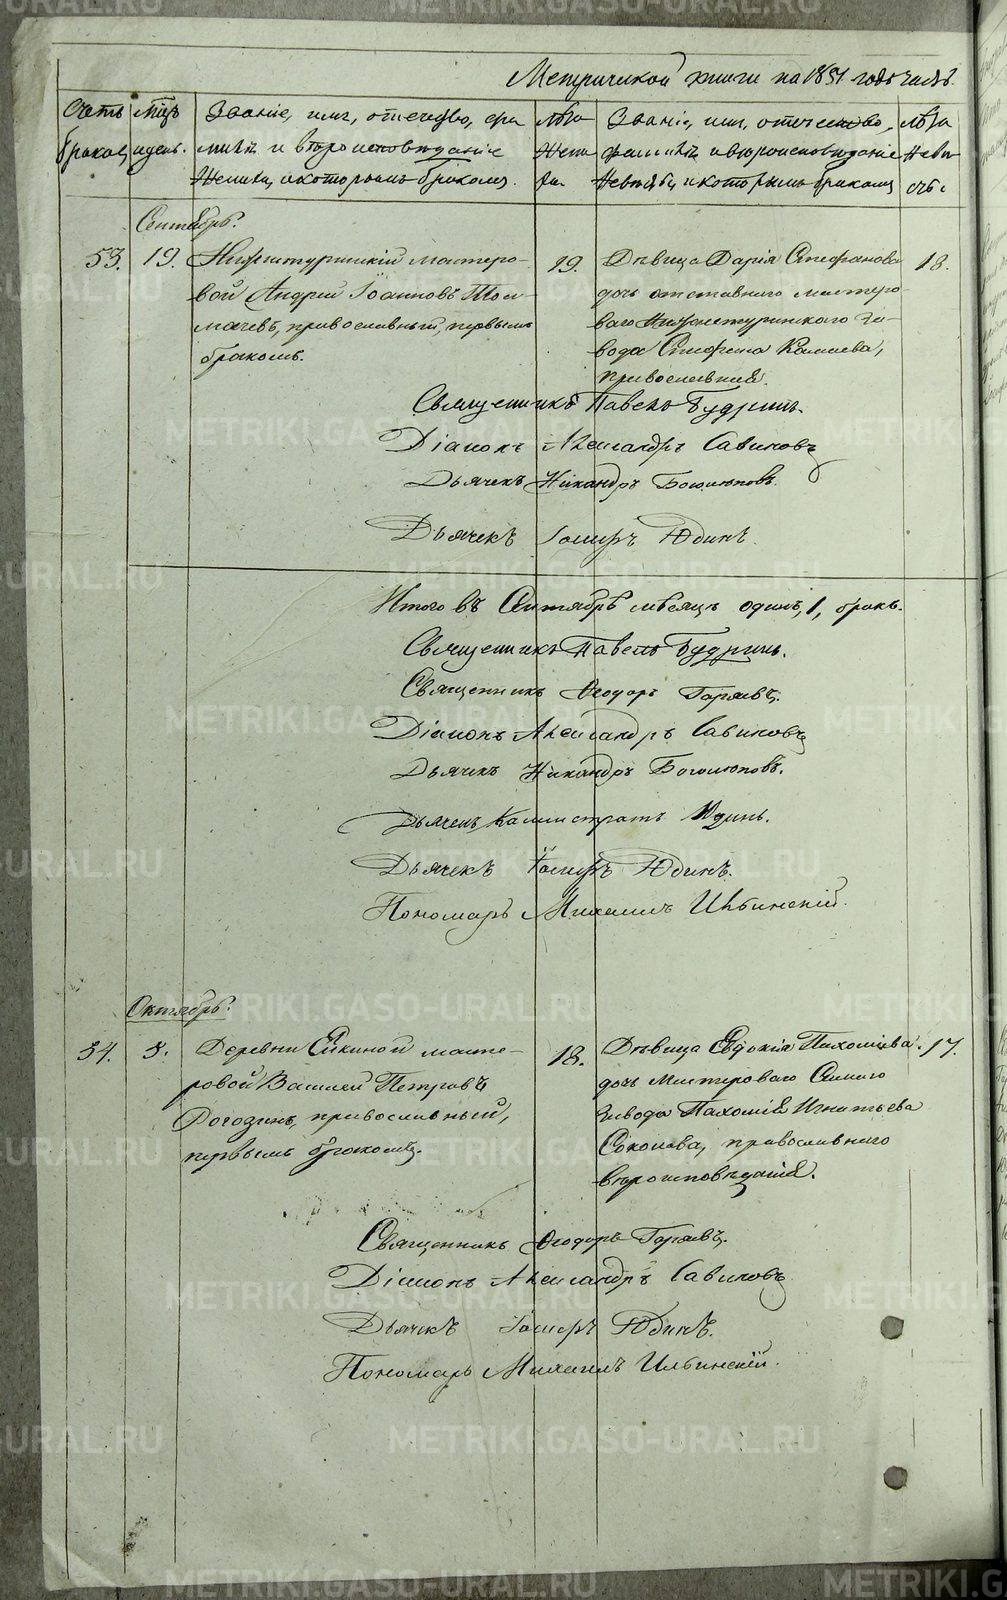 Метрической книги на 1851 годъ часть
Счетъ браковъ
Мѣсяцъ и день.
Званіе, имя, отечество, фамилія и вѣроисповѣданіе
жениха, и которымъ бракомъ.
Лѣта жениха.
Званіе, имя, отечество,
фамилія и вѣроисповѣданіе
невѣсты, и которымъ бракомъ
Лѣта невѣсты
Сентябрь.
53.
19.
Нижнетуринскій мастеро-
вой Андрей Іоанновъ Тол-
мачевъ, православный, первымъ
бракомъ.
19.
Дѣвица Дарія Стефанова
дочь отставнаго мастеро-
ваго Нижнетуринского За-
вода Стефана Камаева,
православная.
18.
Священникъ Павелъ Будринъ.
Діаконъ Александръ Савиновъ
Дьячекъ Никандръ Боголюповъ.
Дьячекъ Іосифъ Юдинъ.
Итого въ Сентябрѣ мѣсяцѣ одинъ, 1, бракъ.
Священникъ Павелъ Будринъ.
Священникъ Ѳеодоръ Горяевъ.
Діаконъ Александръ Савиновъ
Дьячекъ Никандръ Боголюповъ.
Дьячекъ Каллистратъ Юдинъ.
Дьячекъ Іосифъ Юдинъ.
Пономарь Михаилъ Ильинскій.
Октябрь.
54.
5.
Деревни Елкиной масте-
ровой Василей Петровъ
Рогозинъ, православный,
первымъ бракомъ.
18.
Дѣвица Евдокія Пахоміева
дочь Мастероваго Сего
завода Пахомія Игнатьева
Соколова, православнаго
вѣроисповѣданія.
17.
Священникъ Ѳеодоръ Горяевъ.
Діаконъ Александръ Савиновъ
Дьячекъ Іосифъ Юдинъ.
Пономарь Михаилъ Ильинскій.
METRIKI.GASO-URAL.RU